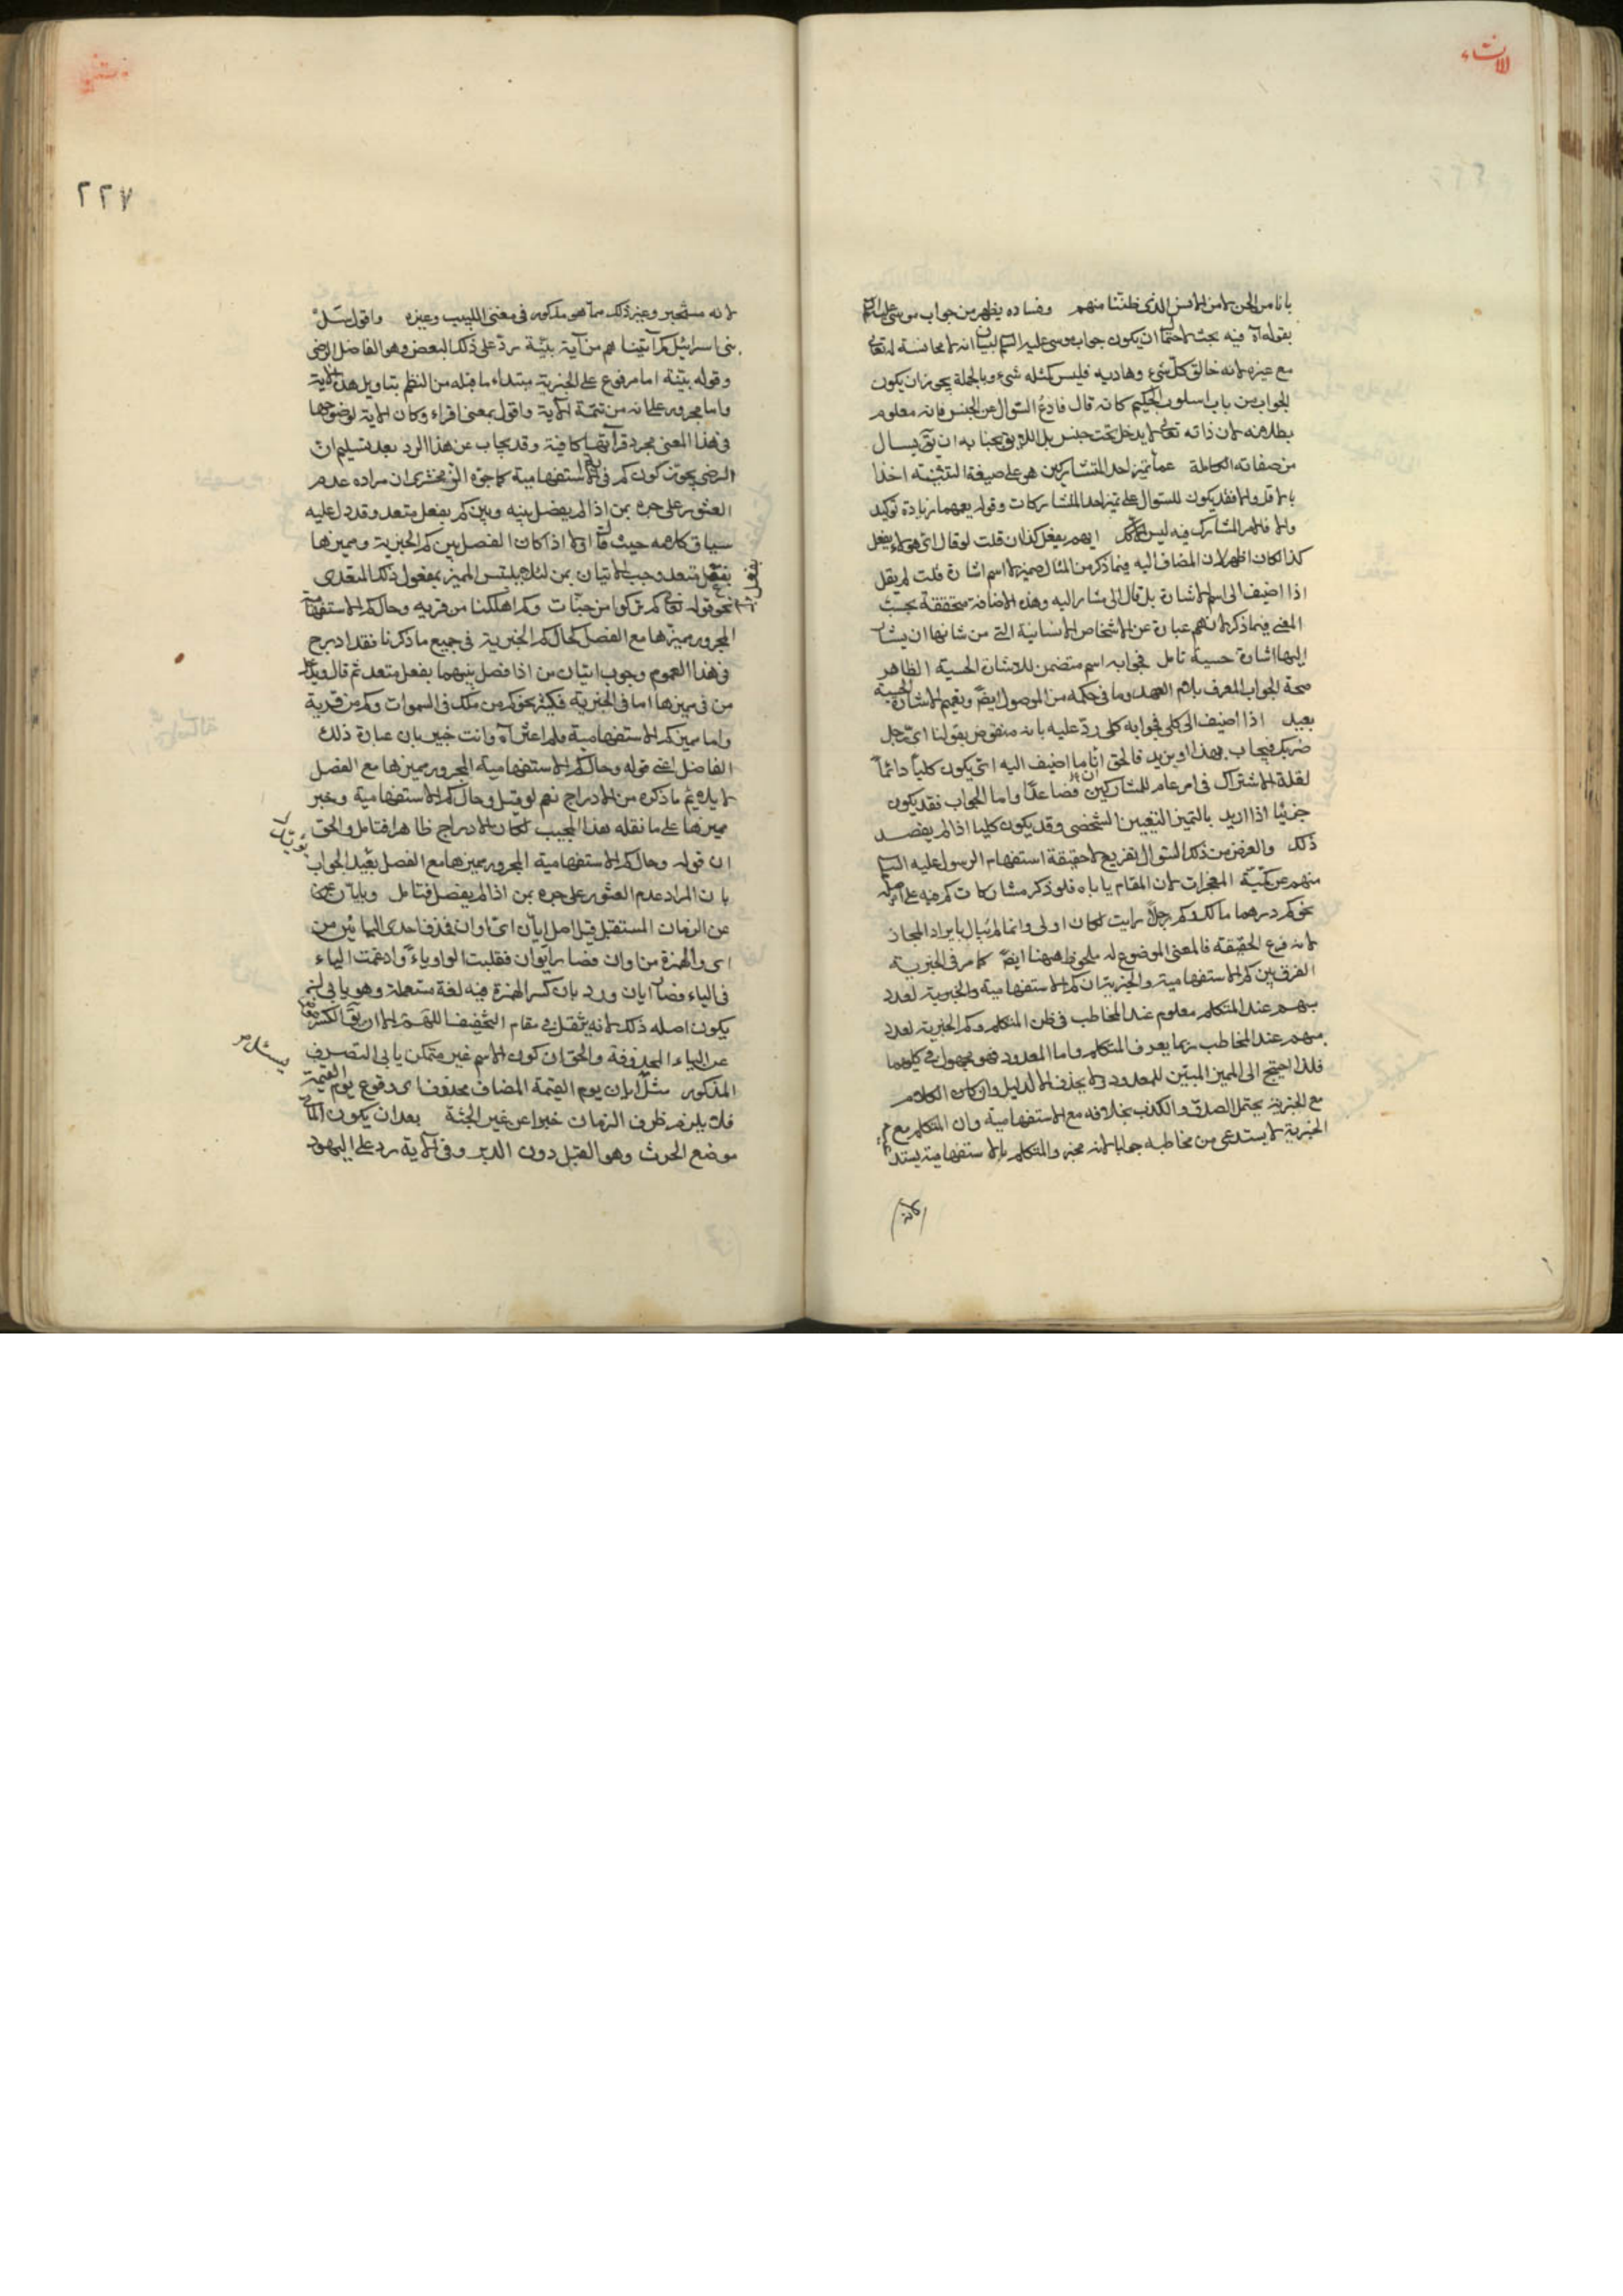 الانشاء
بانا من الجن لا من الانس الذي ظننا منهم وفساده يظهر من جواب موسى عليه السلام
بقوله اه فيه بحث لاحتمال ان يكون جواب موسى عليه السلم لبيان انه لا مجانسة له تعالى
مع غيره لانه خالق كل شيء وهاديه فليس كمثله شيء وبالجملة يجوز ان يكون
الجواب من باب اسلوب الحكيم كانه قال فادع السؤال عن الجنس فانه معلوم
بطلانه لان ذاته تعالى لا يدخل تحت جنس بل اللايق بجنابه ان يسال
من صفاته الكاملة عما يميز احد المتشاركين هو على صيغة التثنية اخذا
بالاقل والا فقد يكون للسوال على تميز احد المتشاركات وقوله يعمهما زيادة توكيد
والا فالامر المشارك فيه ليس الا ايهم يفعل كذا ان قلت لو قال اي هؤلاء يفعل
كذا لكان اظهر لان المضاف اليه فيما ذكر من المثال ضمير لا اسم اشارة قلت لم يقل
اذا اضيف الى اسم الاشارة بل قال الى مشار اليه وهذه الاضافة متحققة بحسب
المعنى فيما ذكر لان هم عبارة عن الاشخاص الانسانية التي من شانها ان يشار
اليها اشارة حسية تامل فجوابه اسم متضمن للاشارة الحسية الظاهر
صحة الجواب المعرف بلام العهد وما في حكمه من الموصول ايضا وتعميم الاشارة الحسية
بعيد اذا اضيف الى كلي فجوابه كلي رد عليه بانه منقوض بقولنا اي رجل
ضربك فيجاب بهذا او بزيد فالحق ان ما اضيف اليه اي يكون كليا دائما
لقلة الاشتراك في امر عام للمشاركين فصاعدا واما الجواب فقد يكون
جزئيا اذا اريد بالتميز التعيين الشخصي وقد يكون كليا اذا لم يقصد
ذلك والغرض من ذلك السوال تقريع لا حقيقة استفهام الرسول عليه السلم
منهم عن كمية المعجزات لان المقام ياباه فلو ذكر مشاركات كم فيه على اصله
نحو كم درهما مالك وكم رجلا رايت لكان اولى وانما لم يبال بايراد المجاز
لانه فرع الحقيقة فالمعنى الموضوع له ملحوظ ههنا ايضا كما مر في الخبرية
الفرق بين كم الاستفهامية والخبرية ان كم الاستفهامية والخبرية لعدد
مبهم عند المتكلم معلوم عند المخاطب في ظن المتكلم وكم الخبرية لعدد
مبهم عند المخاطب ربما يعرف المتكلم واما المعدود فهو مجهول في كليهما
فلذا احتيج الى المميز المبين للمعدود ولا يحذف الا لدليل وان كان الكلام
مع الخبرية يحتمل الصدق والكذب بخلافه مع الاستفهامية وان المتكلم مع
الخبرية لا يستدعي من مخاطبه جوابا لانه مخبر والمتكلم بالاستفهامية يستدعيه
لانه
٢٢٧
لانه مستخبر وغير ذلك مما هو مذكور في مغنى اللبيب وغيره واقول سل
بني اسرائيل كم آتيناهم من آية بينة رد على ذلك البعض وهو الفاضل الرضي
وقوله بينة اما مرفوع على الخبرية مبتداء ما قبله من النظم بتاويل هذه الاية
واما مجرور على انه من تتمة الاية واقول بمعنى اقراء وكان الاية لوضوحها
في هذا المعنى مجرد قرآتها كافية وقد يجاب عن هذا الرد بعد تسليم ان
الرضي يجوز كون كم في الاية استفهامية كما جوزه الزمخشري ان مراده عدم
العثور على جره بمن اذا لم يفصل بينه وبين كم بفعل متعد وقد دل عليه
سياق كلامه حيث قال اولا اذا كان الفصل بين كم الخبرية ومميزها
بفعل متعد وجب الاتيان بمن لئلا يلتبس المميز بمفعول ذلك المتعدى
نحو قوله تعالى كم تركوا من جنات وكم اهلكنا من قرية وحال كم الاستفهامية
المجرور مميزها مع الفصل كحال كم الخبرية في جميع ما ذكرنا فقد ادرج
في هذا العموم وجوب اتيان من اذا فصل بينهما بفعل متعد ثم قال ويدخل
من في مميزها اما في الخبرية فكثير نحو كم من ملك في السموات وكم من قرية
واما مميز كم الاستفهامية فلم اعثر اه وانت خبير بان عبارة ذلك
الفاضل اعني قوله وحال كم الاستفهامية المجرور مميزها مع الفصل
لا يلايم ما ذكره من الادراج نعم لو قيل وحال كم الاستفهامية وخبر
مميزها على ما نقله هذا المجيب لكان الادراج ظاهرا فتامل والحق
ان قوله وحال كم الاستفهامية المجرور مميزها مع الفصل بعيد الجواب
بان المراد عدم العثور على جره بمن اذا لم يفصل فتامل وبايان
عن الزمان المستقبل قيل اصل ايان اي اوان فحذف احدى اليائين من
اي والهمزة من اوان فصار ايوان فقلبت الواو ياء وادغمت الياء
في الياء فصار ايان ورد بان كسر الهمزة فيه لغة مستعملة وهو يابى ان
يكون اصله ذلك لانه تثقل في مقام التخفيف اللهم الا ان يقال الكسر
عن الياء المحذوفة والحق ان كون الاسم غير متمكن يابى التصرف
المذكور مثل ايان يوم القيمة المضاف محذوف اى وقوع يوم القيمة
فلا يلزم ظرف الزمان خبرا عن غير الجثة بعد ان يكون المأتى
موضع الحرث وهو القبل دون الدبر وفي الاية رد على اليهود